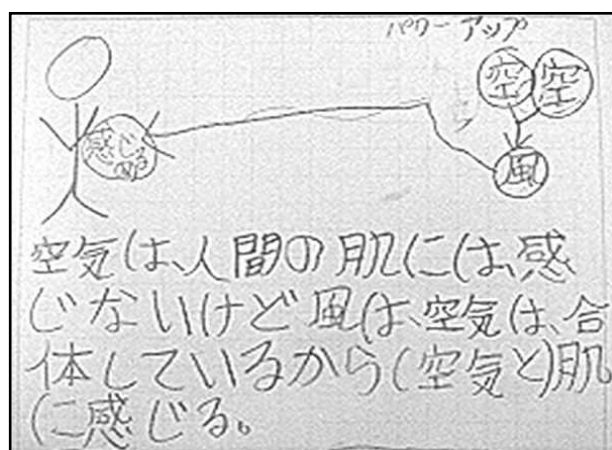 パワーアップ
空 空
風
感じる
空気は、人間の肌には、感
じないけど風は、空気は、合
体しているから(空気と)肌
に感じる。